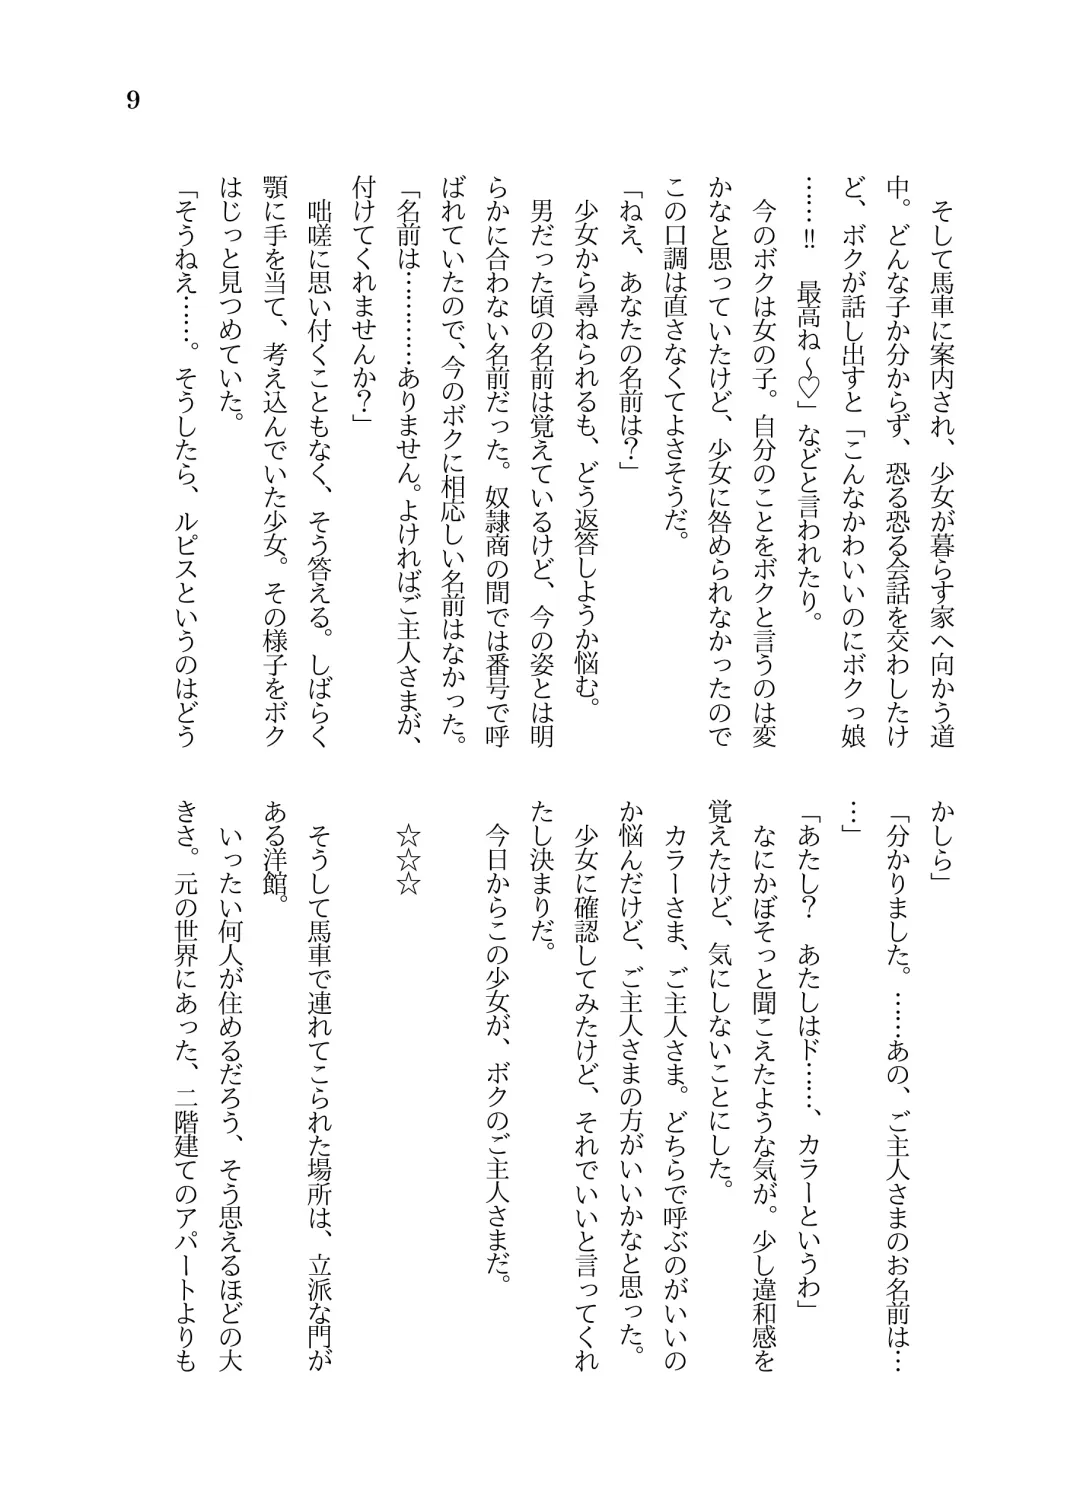 9
そして馬車に案内され、少女が暮らす家へ向かう道
中。どんな子か分からず、恐る恐る会話を交わしたけ
ど、ボクが話し出すと「こんなかわいいのにボクっ娘
……!!　最高ね～♡」などと言われたり。
今のボクは女の子。自分のことをボクと言うのは変
かなと思っていたけど、少女に咎められなかったので
この口調は直さなくてよさそうだ。
「ねえ、あなたの名前は？」
少女から尋ねられるも、どう返答しようか悩む。
男だった頃の名前は覚えているけど、今の姿とは明
らかに合わない名前だった。奴隷商の間では番号で呼
ばれていたので、今のボクに相応しい名前はなかった。
「名前は…………ありません。よければご主人さまが、
付けてくれませんか？」
咄嗟に思い付くこともなく、そう答える。しばらく
顎に手を当て、考え込んでいた少女。その様子をボク
はじっと見つめていた。
「そうねえ……。そうしたら、ルピスというのはどう
かしら」
「分かりました。……あの、ご主人さまのお名前は…
…」
「あたし？　あたしはド……、カラーというわ」
なにかぼそっと聞こえたような気が。少し違和感を
覚えたけど、気にしないことにした。
カラーさま、ご主人さま。どちらで呼ぶのがいいの
か悩んだけど、ご主人さまの方がいいかなと思った。
少女に確認してみたけど、それでいいと言ってくれ
たし決まりだ。
今日からこの少女が、ボクのご主人さまだ。
☆☆☆
そうして馬車で連れてこられた場所は、立派な門が
ある洋館。
いったい何人が住めるだろう、そう思えるほどの大
きさ。元の世界にあった、二階建てのアパートよりも